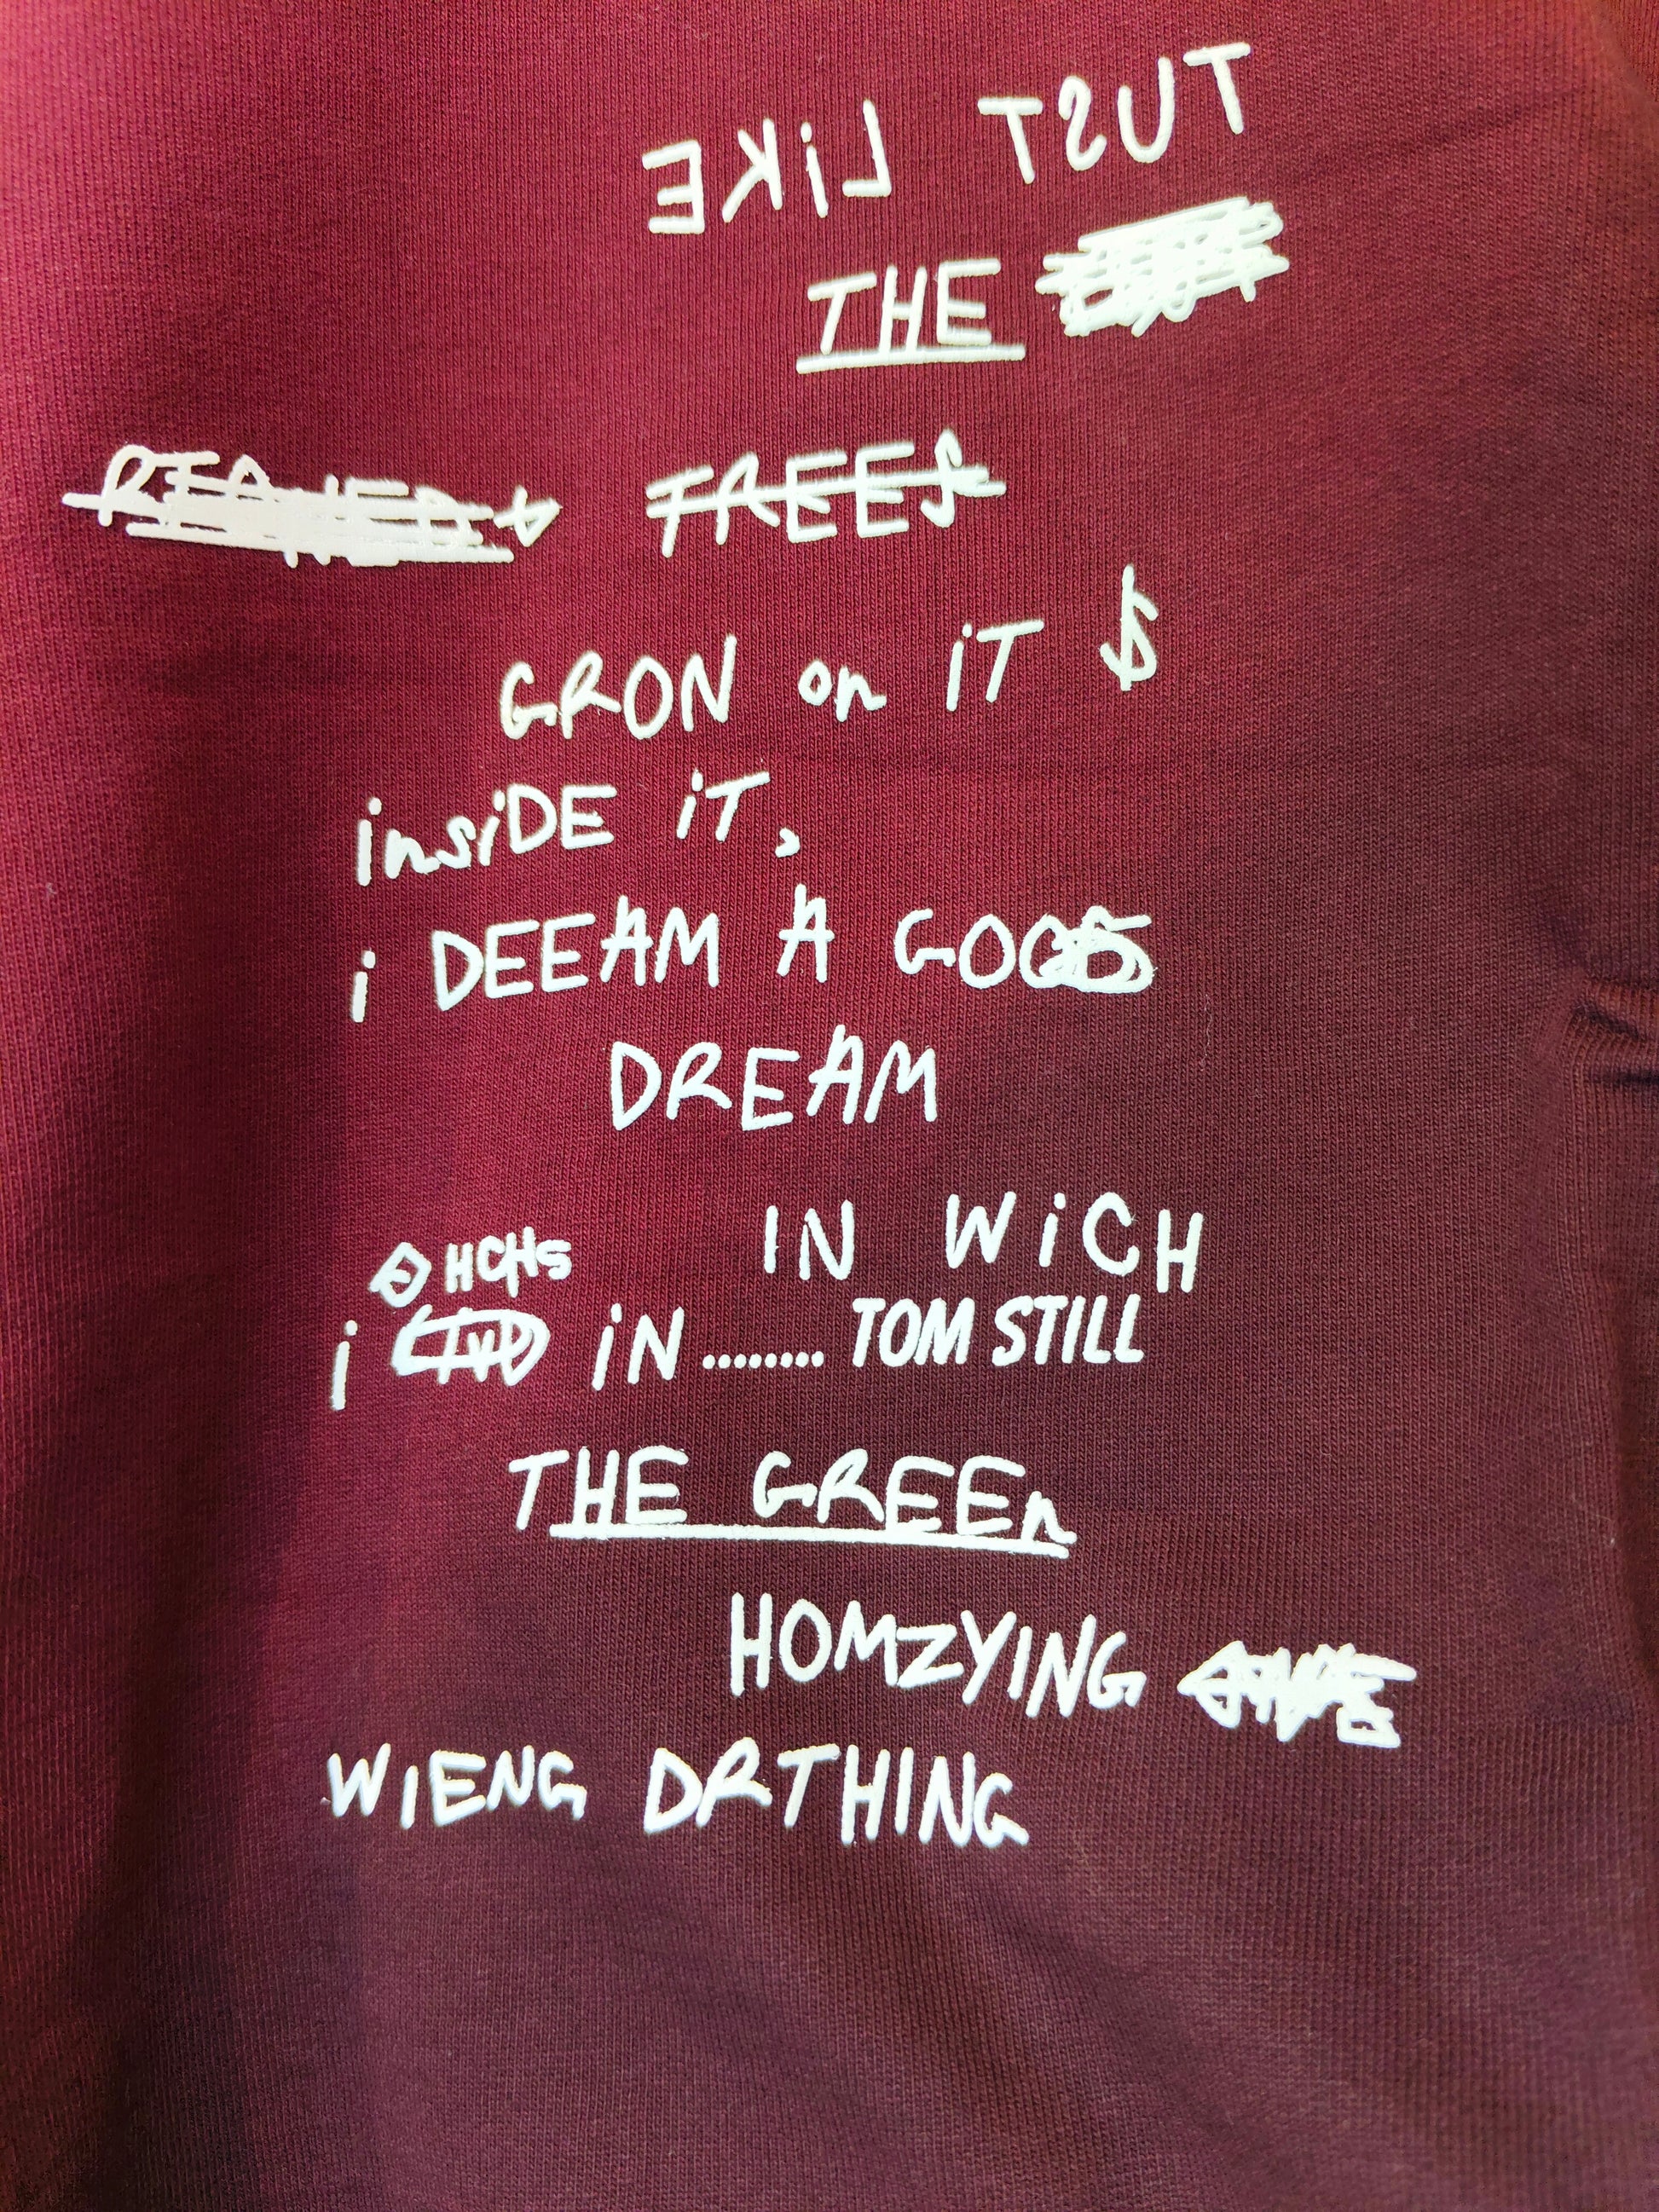 TUST LiKE
THE
TREES
GRON on iT $
insiDE iT,
i DEEAM A
DREAM
IN WiCH
HCHS
i iN ........ TOM STILL
THE GREEn
HOMZYING
WIENG DRTHING